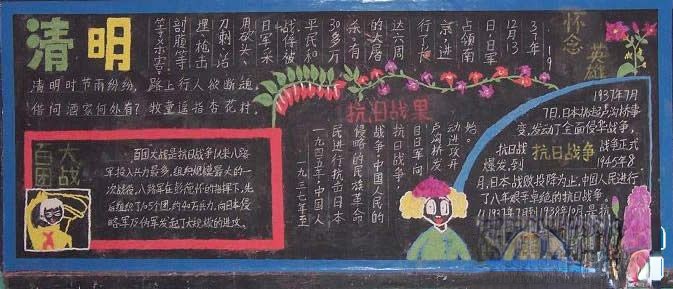 清明
清明时节雨纷纷，路上行人欲断魂。
借问酒家何处有？牧童遥指杏花村。
19
37年
12月13
日，日军
占领南
京，进
行了
达六周
的大屠
杀，有
30多万
平民和
战俘被
日军采
用砍头、
刀刺、活
埋、枪击
剖腹等
等杀害。
怀念
英雄
百团
大战
百团大战是抗日战争以来八路
军投入兵力最多，组织规模最大的一
次战役。八路军在彭德怀的指挥下，先
后组织了105个团，约40万兵力，向日本侵
略军及伪军发起了大规模的进攻。
抗日战果
一九三七年至
一九四五年，中国人
民进行抗击日本
侵略的民族革命
战争，中国人民的
抗日战争，
目日军向
卢沟桥发
动进攻开
始。
1937年7月
7日，日本挑起卢沟桥事
变，发动了全面侵华战争，
抗日战争
抗日战 战争正式
爆发，到 1945年8
月，日本战败投降为止，中国人民进行
了八年艰辛卓绝的抗日战争。
从1937年7月到1938年10月，是抗